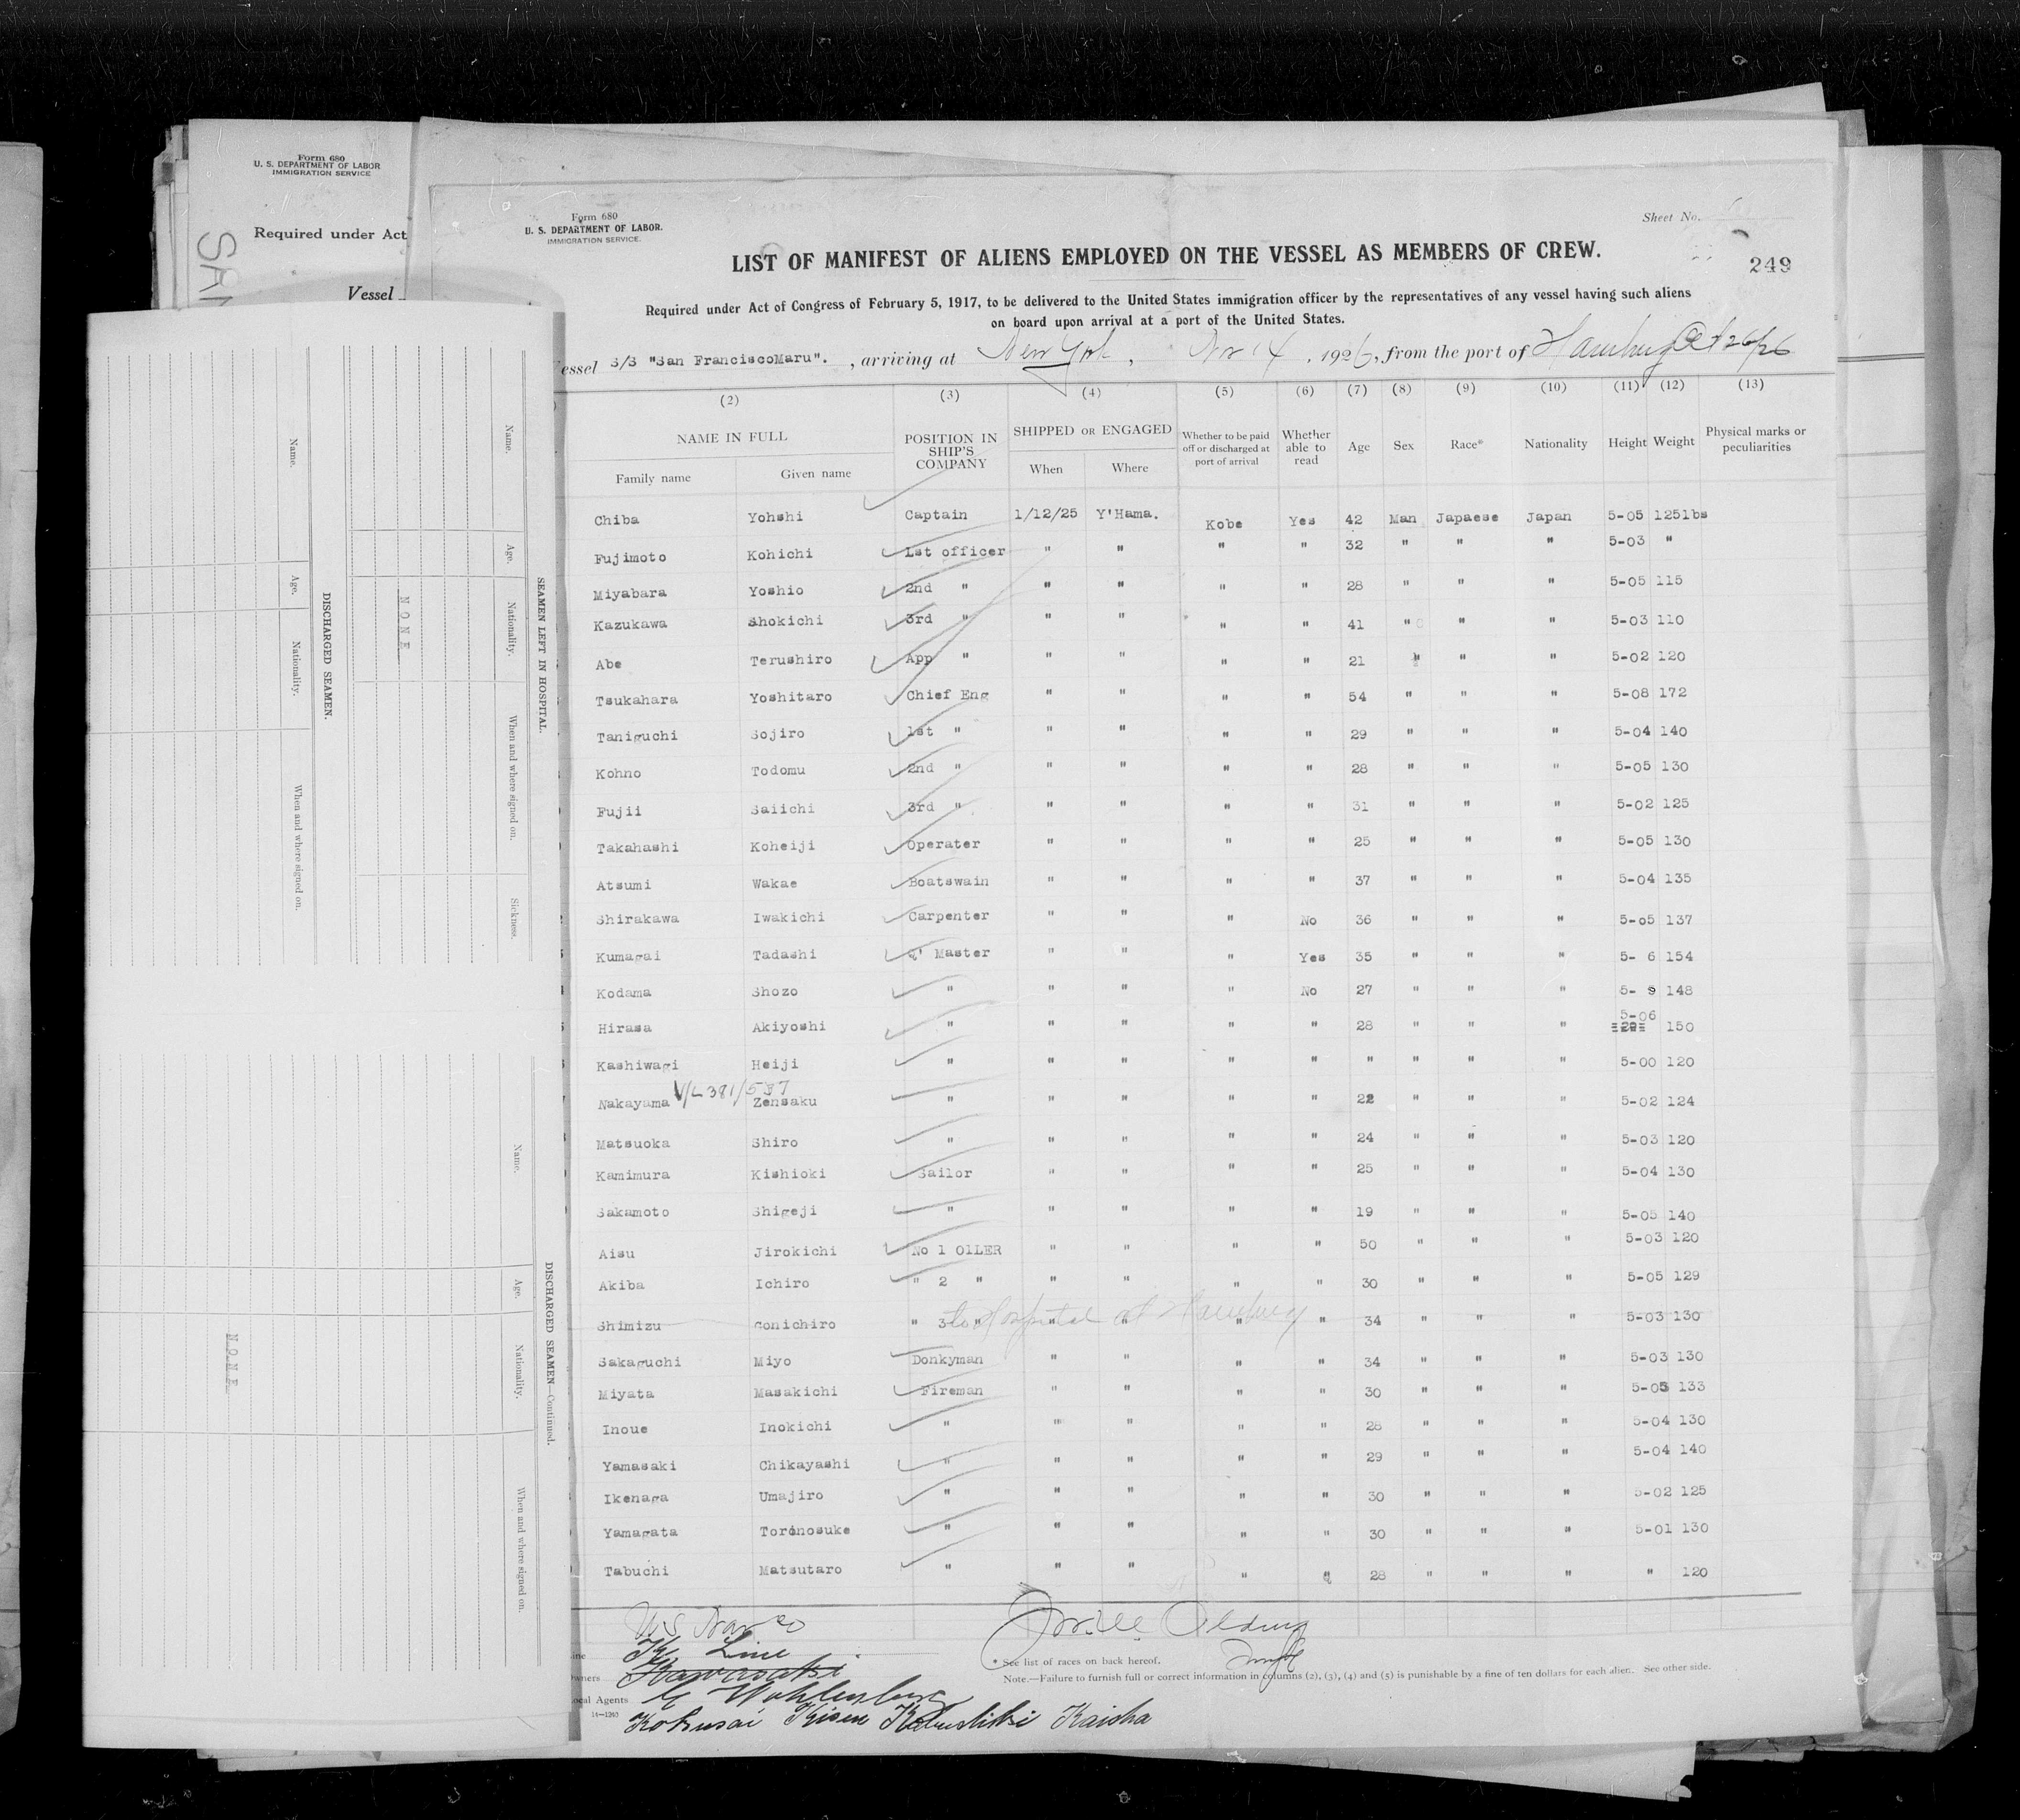 Form 680
U. S. DEPARTMENT OF LABOR
IMMIGRATION SERVICE
Required under Act
Vessel
SAN
Form 680
U. S. DEPARTMENT OF LABOR.
IMMIGRATION SERVICE.
Sheet No.
LIST OF MANIFEST OF ALIENS EMPLOYED ON THE VESSEL AS MEMBERS OF CREW.
249
Required under Act of Congress of February 5, 1917, to be delivered to the United States immigration officer by the representatives of any vessel having such aliens
on board upon arrival at a port of the United States.
essel S/S "San FranciscoMaru". , arriving at New York, Nov 14, 1926, from the port of Hamburg Oct 26/26
(2) (3) (4) (5) (6) (7) (8) (9) (10) (11) (12) (13)
NAME IN FULL POSITION IN SHIP'S COMPANY SHIPPED OR ENGAGED Whether to be paid off or discharged at port of arrival Whether able to read Age Sex Race* Nationality Height Weight Physical marks or peculiarities
Family name Given name When Where
Chiba Yohshi Captain 1/12/25 Y'Hama. Kobe Yes 42 Man Japaese Japan 5-05 125lbs
Fujimoto Kohichi 1st officer " " " " 32 " " " 5-03 "
Miyabara Yoshio 2nd " " " " " 28 " " " 5-05 115
Kazukawa Shokichi 3rd " " " " " 41 " " " 5-03 110
Abe Terushiro App " " " " " 21 " " " 5-02 120
Tsukahara Yoshitaro Chief Eng " " " " 54 " " " 5-08 172
Taniguchi Sojiro 1st " " " " " 29 " " " 5-04 140
Kohno Todomu 2nd " " " " " 28 " " " 5-05 130
Fujii Saiichi 3rd " " " " " 31 " " " 5-02 125
Takahashi Koheiji Operater " " " " 25 " " " 5-05 130
Atsumi Wakae Boatswain " " " " 37 " " " 5-04 135
Shirakawa Iwakichi Carpenter " " " No 36 " " " 5-05 137
Kumagai Tadashi Q' Master " " " Yes 35 " " " 5- 6 154
Kodama Shozo " " " " No 27 " " " 5- 9 148
Hirasa Akiyoshi " " " " " 28 " " " 5-06 150
Kashiwagi Heiji " " " " " " " " " 5-00 120
Nakayama V/L 381/537 Zensaku " " " " " 22 " " " 5-02 124
Matsuoka Shiro " " " " " 24 " " " 5-03 120
Kamimura Kishioki Sailor " " " " 25 " " " 5-04 130
Sakamoto Shigeji " " " " " 19 " " " 5-05 140
Aisu Jirokichi No 1 OlLER " " " " 50 " " " 5-03 120
Akiba Ichiro " 2 " " " " " 30 " " " 5-05 129
Shimizu Gonichiro " 3 " " " " " 34 " " " 5-03 130
to Hospital at Hamburg
Sakaguchi Miyo Donkyman " " " " 34 " " " 5-03 130
Miyata Masakichi Fireman " " " " 30 " " " 5-05 133
Inoue Inokichi " " " " " 28 " " " 5-04 130
Yamasaki Chikayashi " " " " " 29 " " " 5-04 140
Ikenaga Umajiro " " " " " 30 " " " 5-02 125
Yamagata Toronosuke " " " " " 30 " " " 5-01 130
Tabuchi Matsutaro " " " " " 28 " " " " 120
ine K Line
wners Kawasaki
ocal Agents
Kokusai Kisen Kabushiki Kaisha
14—1240
* See list of races on back hereof.
Note.—Failure to furnish full or correct information in columns (2), (3), (4) and (5) is punishable by a fine of ten dollars for each alien. See other side.
SEAMEN LEFT IN HOSPITAL.
Name. Age. Nationality. When and where signed on. Sickness.
NONE
DISCHARGED SEAMEN.
Name. Age. Nationality. When and where signed on.
DISCHARGED SEAMEN—Continued.
Name. Age. Nationality. When and where signed on.
NONE